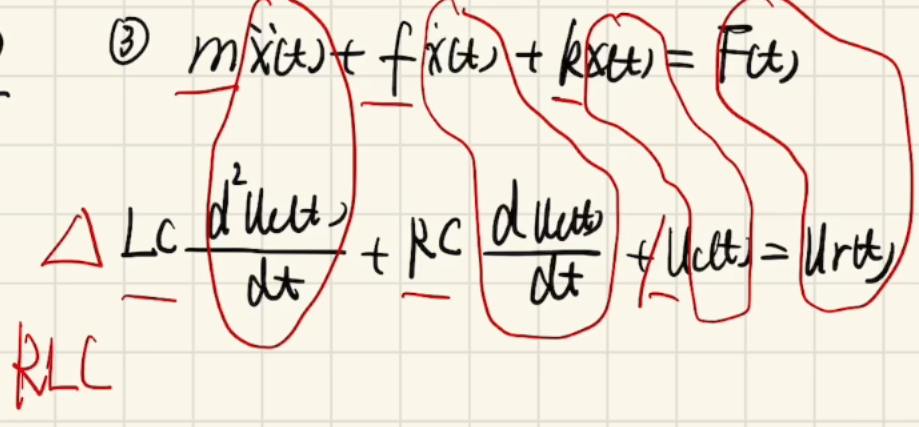 ③ mẍ(t) + fẋ(t) + kx(t) = F(t)
△ LC d²Uc(t)/dt + RC dUc(t)/dt + 1 Uc(t) = Ur(t)
RLC